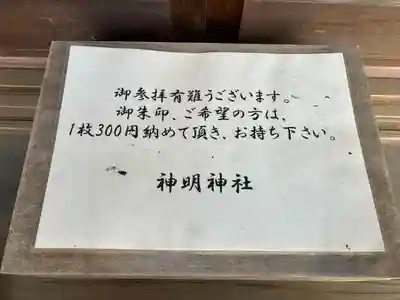 御参拝有難うございます。
御朱印、ご希望の方は、
1枚300円納めて頂き、お持ち下さい。
神明神社